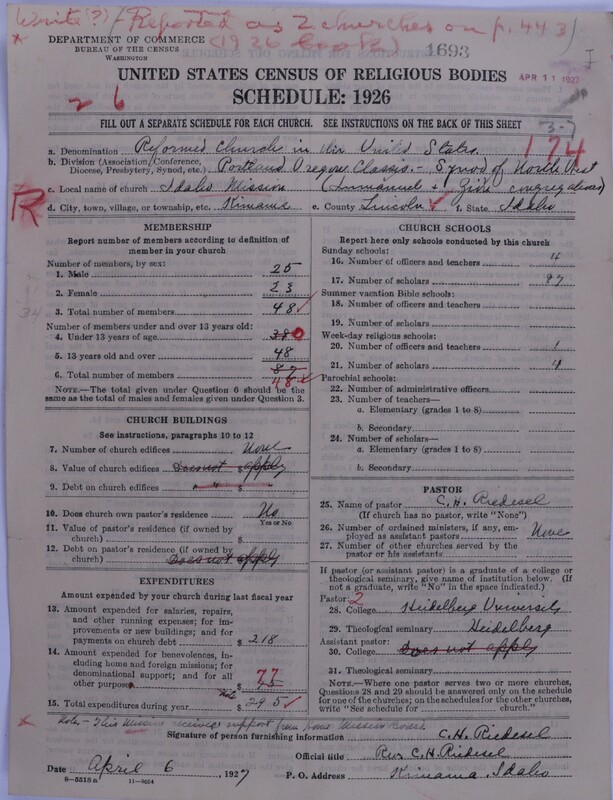 Write(?) / Reported as 2 churches on p. 443
(1926 books)
DEPARTMENT OF COMMERCE
BUREAU OF THE CENSUS
WASHINGTON
1693
APR 11 1927
UNITED STATES CENSUS OF RELIGIOUS BODIES
SCHEDULE: 1926
26
FILL OUT A SEPARATE SCHEDULE FOR EACH CHURCH. SEE INSTRUCTIONS ON THE BACK OF THIS SHEET
3-
174
a. Denomination Reformed Church in the United States.
b. Division (Association, Conference, Diocese, Presbytery, Synod, etc.) Portland Oregon Classis - Synod of North West
c. Local name of church Idaho Mission (Immanuel + Zion congregations)
R
d. City, town, village, or township, etc. Kimama e. County Lincoln f. State Idaho
MEMBERSHIP
Report number of members according to definition of
member in your church
Number of members, by sex:
1. Male 25
2. Female 23
3. Total number of members 48
34
Number of members under and over 13 years old:
4. Under 13 years of age 0
5. 13 years old and over 48
6. Total number of members 87
48
NOTE.—The total given under Question 6 should be the
same as the total of males and females given under Question 3.
CHURCH BUILDINGS
See instructions, paragraphs 10 to 12
7. Number of church edifices None
8. Value of church edifices Does not $ apply
9. Debt on church edifices " " $ "
10. Does church own pastor's residence No
Yes or No
11. Value of pastor's residence (if owned by
church) $
12. Debt on pastor's residence (if owned by
church) Does not apply
EXPENDITURES
Amount expended by your church during last fiscal year
13. Amount expended for salaries, repairs,
and other running expenses; for im-
provements or new buildings; and for
payments on church debt $ 218
14. Amount expended for benevolences, in-
cluding home and foreign missions; for
denominational support; and for all
other purposes $ 77
Note
15. Total expenditures during year $ 295
CHURCH SCHOOLS
Report here only schools conducted by this church
Sunday schools:
16. Number of officers and teachers 11
17. Number of scholars 97
Summer vacation Bible schools:
18. Number of officers and teachers
19. Number of scholars
Week-day religious schools:
20. Number of officers and teachers 1
21. Number of scholars 4
Parochial schools:
22. Number of administrative officers
23. Number of teachers—
a. Elementary (grades 1 to 8)
b. Secondary
24. Number of scholars—
a. Elementary (grades 1 to 8)
b. Secondary
PASTOR
25. Name of pastor C. H. Riedesel
(If church has no pastor, write "None")
26. Number of ordained ministers, if any, em-
ployed as assistant pastors None
27. Number of other churches served by the
pastor or his assistants
If pastor (or assistant pastor) is a graduate of a college or
theological seminary, give name of institution below. (If
not a graduate, write "No" in the space indicated.)
Pastor: 2
28. College Heidelberg University
29. Theological seminary Heidelberg
Assistant pastor:
30. College Does not apply
31. Theological seminary
NOTE.—Where one pastor serves two or more churches,
Questions 28 and 29 should be answered only on the schedule
for one of the churches; on the schedules for the other churches,
write "See schedule for church."
Note - This Mission receives support from Home Mission Board.
Signature of person furnishing information C. H. Riedesel
Official title Rev. C. H. Riedesel
Date April 6, 1927
P. O. Address Kimama, Idaho
8-5518a 11-9604